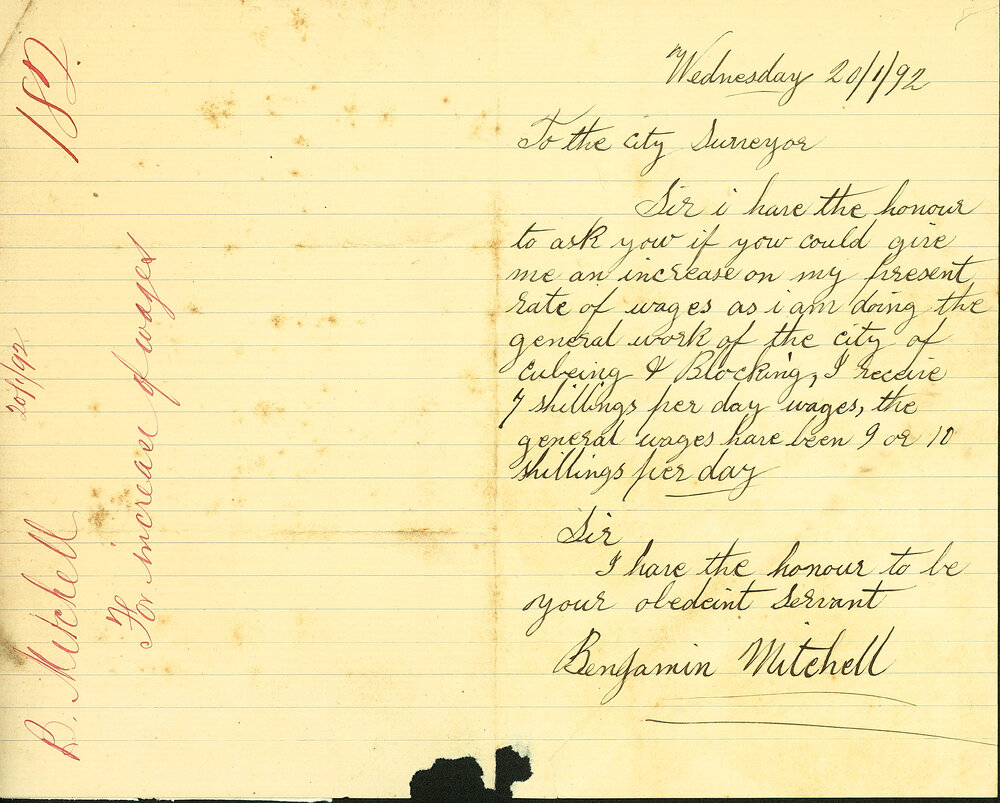 182
20/1/92
B. Mitchell
For increase of wages
Wednesday 20/1/92
To the city Surveyor
Sir i have the honour
to ask you if you could give
me an increase on my present
rate of wages as i am doing the
general work of the city of
Cubeing & Blocking, I receive
7 shillings per day wages, the
general wages have been 9 or 10
shillings per day
Sir
I have the honour to be
your obedeint Servant
Benjamin Mitchell